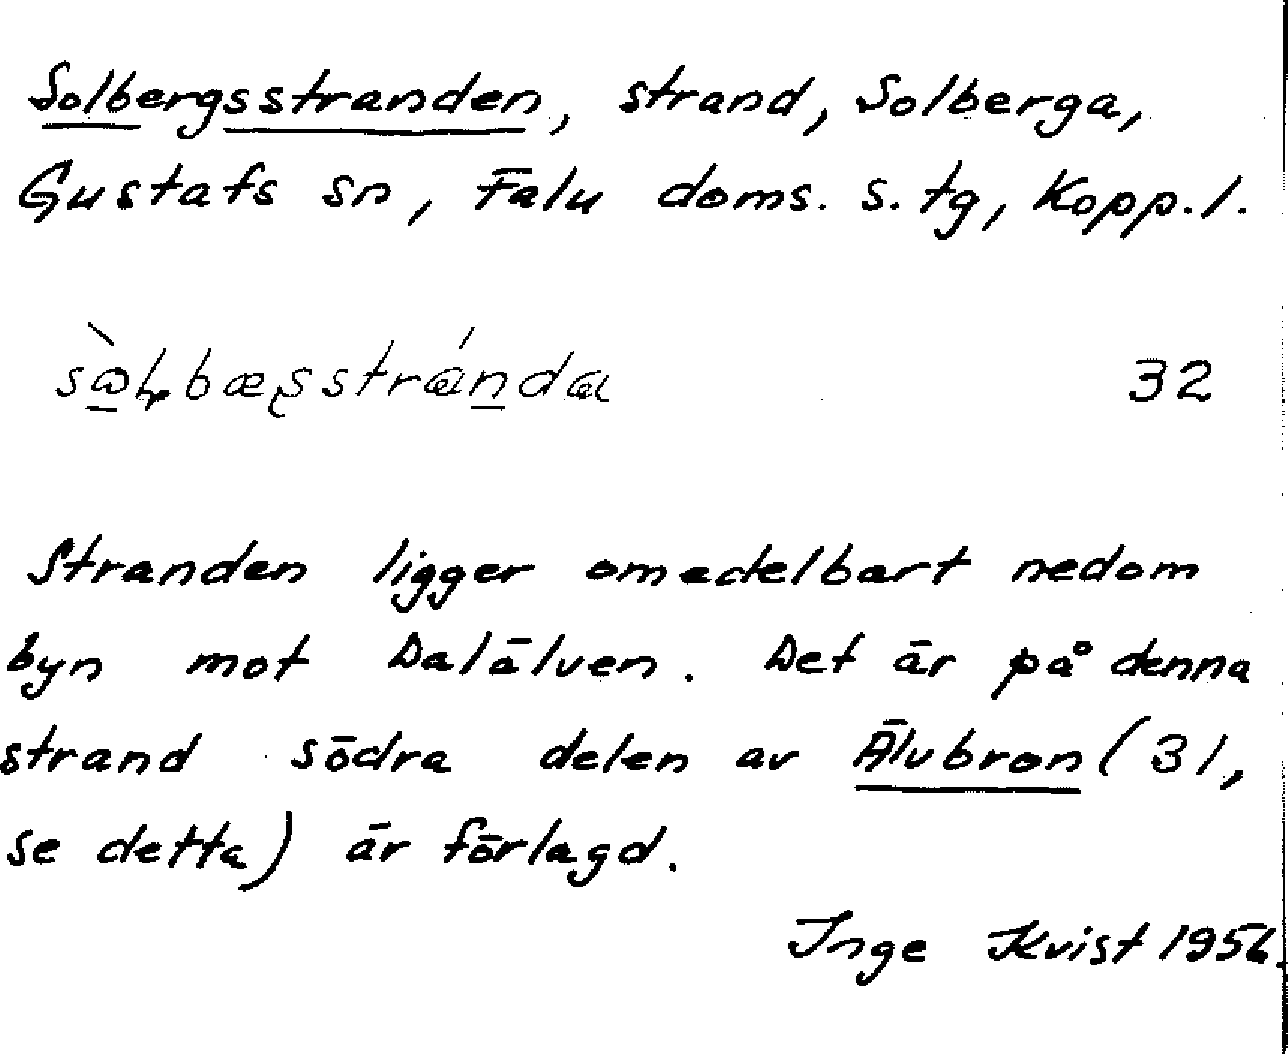 Solbergsstranden, strand, Solberga,
Gustafs sn, Falu doms. s. tg, Kopp. l.
32
Stranden ligger omedelbart nedom
byn mot Dalälven. Det är på denna
strand södra delen av Älvbron (31,
se detta) är förlagd.
Inge Kvist 1956.